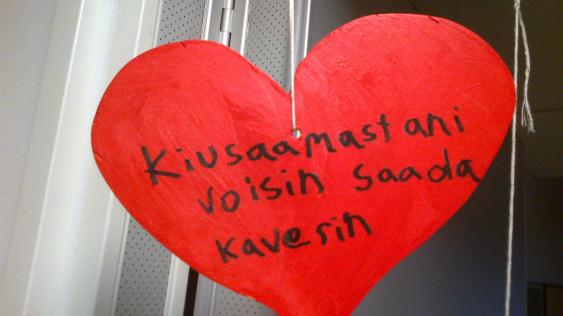 Kiusaamastani
voisin saada
kaverin